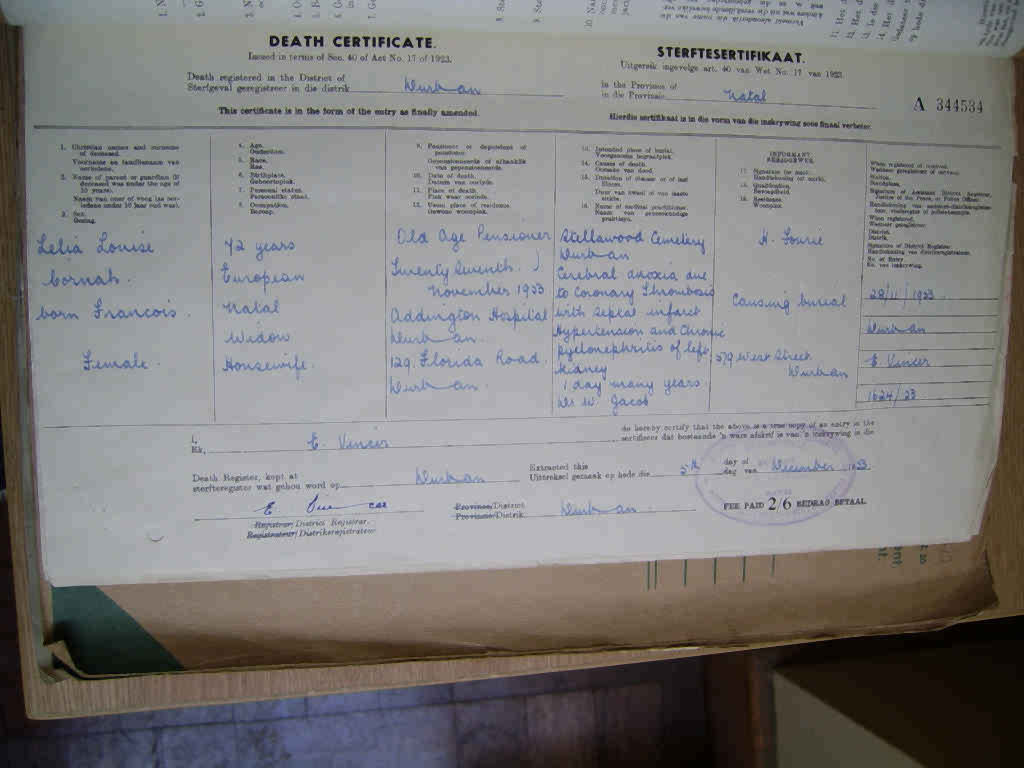 DEATH CERTIFICATE.
Issued in terms of Sec. 40 of Act No. 17 of 1923.
STERFTESERTIFIKAAT.
Uitgereik ingevolge art. 40 van Wet No. 17 van 1923.
Death registered in the District of
Sterfgeval geregistreer in die distrik
Durban
in the Province of
in die Provinsie
Natal
A 344534
This certificate is in the form of the entry as finally amended.
Hierdie sertifikaat is in die vorm van die inskrywing soos finaal verbeter.
1. Christian names and surname
of deceased.
Voorname en familienaam van
oorledene.
2. Name of parent or guardian (if
deceased was under the age of
10 years).
Naam van ouer of voog (as oor-
ledene onder 10 jaar oud was).
3. Sex.
Geslag.
Lelia Louise
Cornah.
born Francois.
Female.
4. Age.
Ouderdom.
5. Race.
Ras.
6. Birthplace.
Geboorteplek.
7. Personal status.
Persoonlike staat.
8. Occupation.
Beroep.
72 years
European
Natal
Widow
Housewife.
9. Pensioner or dependent of
pensioner.
Gepensioeneerde of afhanklik
van gepensioeneerde.
10. Date of death.
Datum van oorlyde.
11. Place of death.
Plek waar oorlede.
12. Usual place of residence.
Gewone woonplek.
Old Age Pensioner
Twenty Seventh
November 1953
Addington Hospital
Durban.
129. Florida Road.
Durban.
13. Intended place of burial.
Voorgenome begraafplek.
14. Causes of death.
Oorsake van dood.
15. Duration of disease or of last
illness.
Duur van kwaal of van laaste
siekte.
16. Name of medical practitioner.
Naam van geneeskundige
praktisyn.
Stellawood Cemetery
Durban
Cerebral anoxia due
to Coronary Thrombosis
with septal infarct
Hypertension and Chronic
pyelonephritis of left
kidney
1 day many years.
Dr W. Jacob
INFORMANT
BERIGGEWER
17. Signature (or mark).
Handtekening (of merk).
18. Qualification.
Bevoegdheid.
19. Residence.
Woonplek.
H. Fourie
Causing burial
579 West Street
Durban
When registered or received.
Wanneer geregistreer of ontvang.
Station.
Standplaas.
Signature of Assistant District Registrar,
Justice of the Peace, or Police Officer.
When registered.
Wanneer geregistreer.
District.
Distrik.
Signature of District Registrar.
Handtekening van distriksregistrateur.
No. of Entry
No. van inskrywing.
28/11/1953.
Durban
E Vincer
1624/53
I,
Ek,
E. Vincer
do hereby certify that the above is a true copy of an entry in the
sertifiseer dat bostaande 'n ware afskrif is van 'n inskrywing in die
Death Register, kept at
sterfteregister wat gehou word op
Durban
Extracted this
Uittreksel gemaak op hede die
5th
day of
dag van
December 1953
E Vincer
Registrar/District Registrar.
Registrateur/Distrikregistrateur
Province/District.
Provinsie/Distrik.
Durban.
FEE PAID 2/6 BEDRAG BETAAL